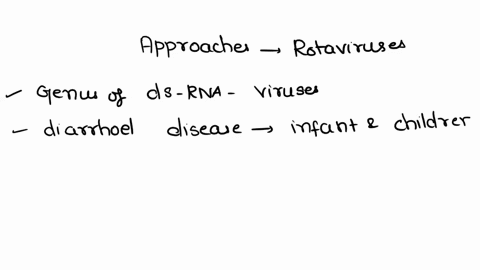 Approaches → Rotaviruses
- Genus of ds-RNA- viruses
- diarrhoel disease → infant & childrer